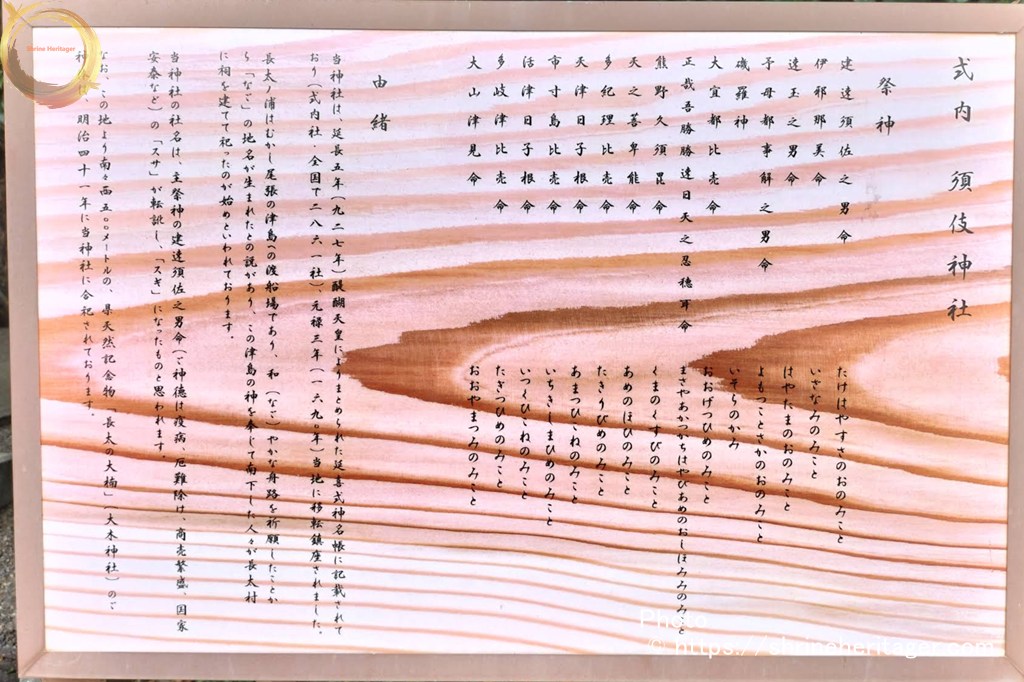 式内 須伎神社
祭神
建速須佐之男命 たけはやすさのおのみこと
伊邪那美命 いざなみのみこと
速玉之男命 はやたまのおのみこと
予母都事解之男命 よもつことさかのおのみこと
磯羅神 いそらのかみ
大宜都比売命 おおげつひめのみこと
正哉吾勝勝速日天之忍穂耳命 まさやあかつかちはやびあめのおしほみみのみこと
熊野久須毘命 くまのくすびのみこと
天之菩卑能命 あめのほひのみこと
多紀理比売命 たきりびめのみこと
天津日子根命 あまつひこねのみこと
市寸島比売命 いちきしまひめのみこと
活津日子根命 いつくひこねのみこと
多岐津比売命 たぎつひめのみこと
大山津見命 おおやまつみのみこと
由緒
当神社は、延長五年(九二七年)醍醐天皇によりまとめられた延喜式神名帳に記載されて
おり(式内社・全国で二八六一社)、元禄三年(一六九〇年)当地に移転鎮座されました。
長太ノ浦はむかし尾張の津島への渡船場であり、和(なご)やかな舟路を祈願したことか
ら「なご」の地名が生まれたとの説があり、この津島の神を奉じて南下した人々が長太村
に祠を建てて祀ったのが始めといわれております。
当神社の社名は、主祭神の建速須佐之男命(ご神徳は疫病、厄難除け、商売繁盛、国家
安泰など)の「スサ」が転訛し、「スギ」になったものと思われます。
なお、この地より南々西五〇〇メートルの、県天然記念物「長太の大楠」(大木神社)のご
神 は、明治四十一年に当神社に合祀されております。
Shrine Heritager
Photo.
© https://shrineheritager.com